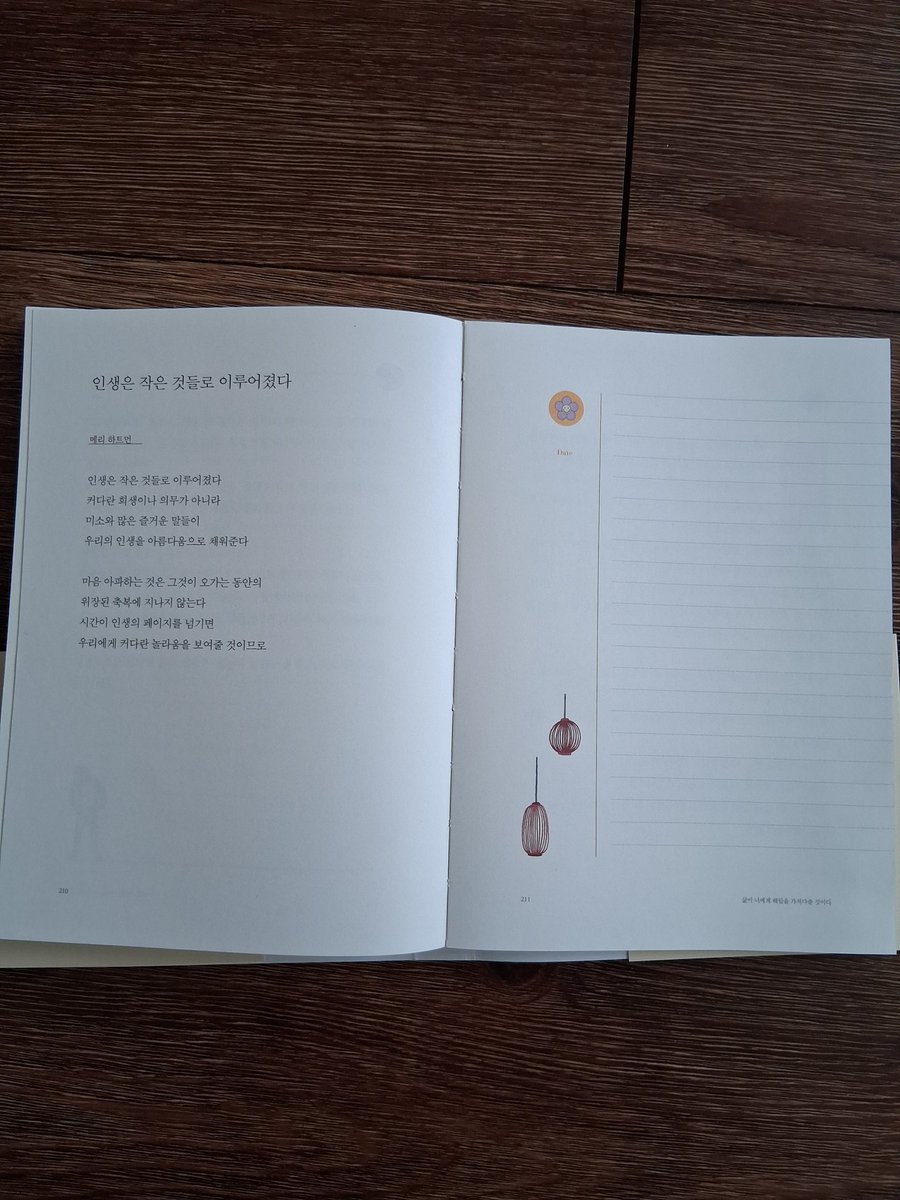 인생은 작은 것들로 이루어졌다
메리 하트먼
인생은 작은 것들로 이루어졌다
커다란 희생이나 의무가 아니라
미소와 많은 즐거운 말들이
우리의 인생을 아름다움으로 채워준다
마음 아파하는 것은 그것이 오가는 동안의
위장된 축복에 지나지 않는다
시간이 인생의 페이지를 넘기면
우리에게 커다란 놀라움을 보여줄 것이므로
210
Date
211
삶이 너에게 해답을 가져다줄 것이다